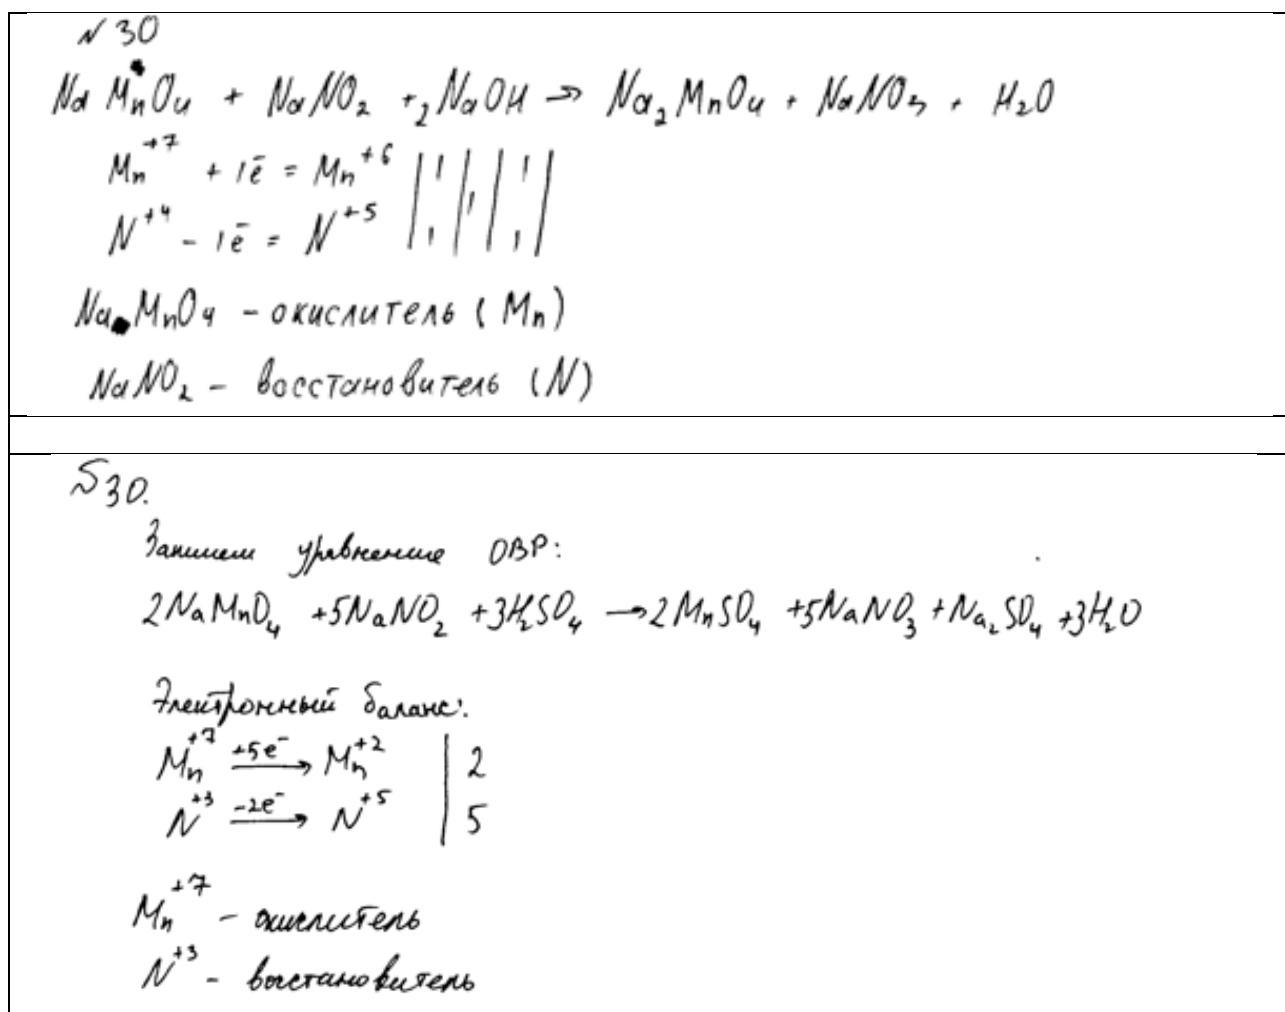 N 30
NaMnO4 + NaNO2 + 2NaOH → Na2MnO4 + NaNO3 + H2O
Mn+7 + 1ē = Mn+6 | 1 | 1 | 1 |
N+4 - 1ē = N+5 | 1 | | 1 |
NaMnO4 - окислитель (Mn)
NaNO2 - восстановитель (N)
N30.
Запишем уравнение ОВР:
2NaMnO4 + 5NaNO2 + 3H2SO4 → 2MnSO4 + 5NaNO3 + Na2SO4 + 3H2O
Электронный баланс:
Mn+7 +5e-→ Mn+2 | 2
N+3 -2e-→ N+5 | 5
Mn+7 - окислитель
N+3 - восстановитель